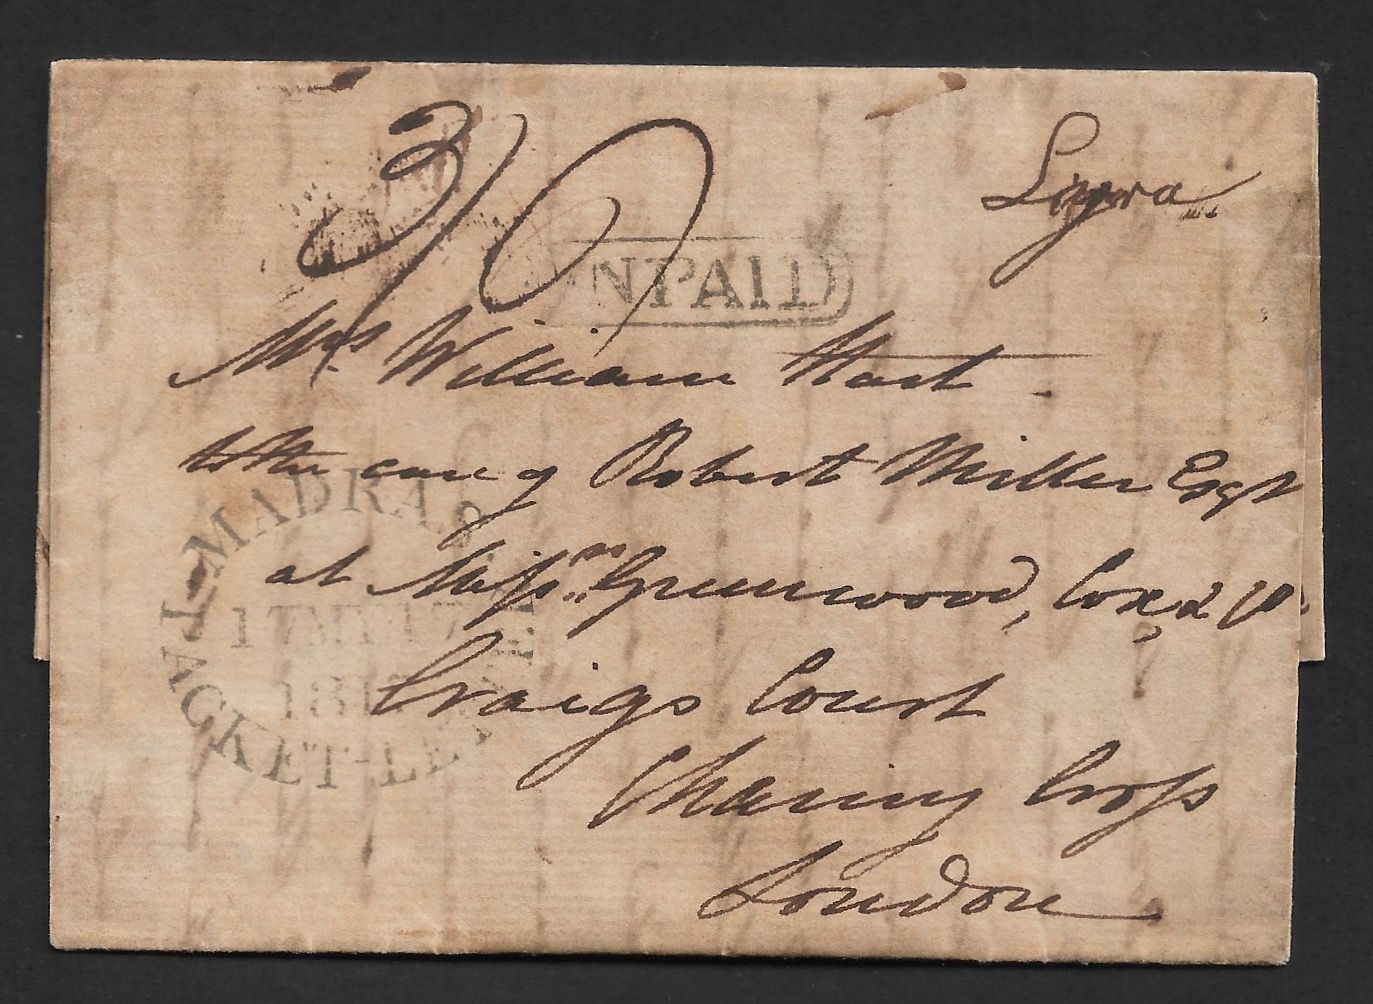 3/6
Lyra
UNPAID
Mrs. William Hart
to the care of Robert Miller Esqr
at Messrs. Greenwood, Cox, & Co
Craigs Court
Charing Cross
London
MADRAS
PACKET-LETTER
17MY17
181